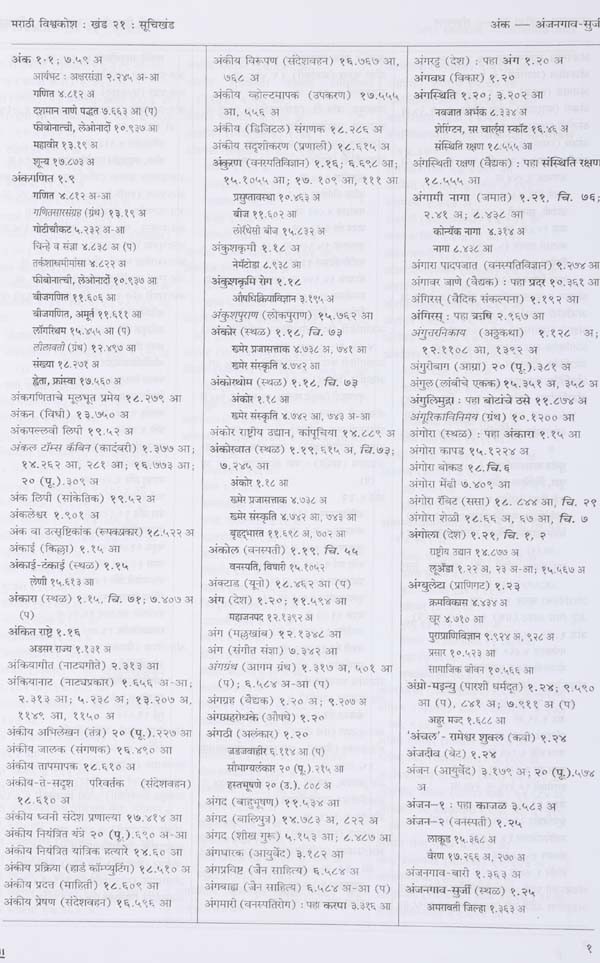 मराठी विश्वकोश : खंड २१ : सूचिखंड
अंक — अंजनगाव-सुर्जी
अंक १·१; ७.५९ अ
आर्यभट : अक्षरसंज्ञा २.२४५ अ-आ
गणित ४.८१२ अ
दशमान नाणे पद्धत ७.६६३ आ (प)
फीबोनात्ची, लेओनार्दो १०.९३७ आ
महावीर १३.१९ अ
शून्य १७.८७३ अ
अंकगणित १.९
गणित ४.८१२ अ-आ
गणितसारसंग्रह (ग्रंथ) १३.१९ अ
गोटीचौकट ५.२३२ अ-आ
चिन्हे व संज्ञा ४.८३८ अ (प)
तर्कशास्त्रमीमांसा ४.८२२ अ
फीबोनात्ची, लेओनार्दो १०.९३७ आ
बीजगणित ११.६०६ अ
बीजगणित, अमूर्त ११.६११ आ
लॉगरिथम १५.४५५ आ (प)
लीलावती (ग्रंथ) १२.४९७ आ
संख्या १८.२७१ अ
ह्वेता, फ्रांस्वा १७.५६० अ
अंकगणिताचे मूलभूत प्रमेय १८.२७९ आ
अंकन (विधी) १३.७५० अ
अंकपल्लवी लिपी १९.५२ अ
अंकल टॉम्स कॅबिन (कादंबरी) १.३७७ आ;
१४.२६२ आ, २८१ आ; १६.७७३ आ;
२० (पू.).३०९ अ
अंक लिपी (सांकेतिक) १९.५२ अ
अंकलेश्वर १.९०१ अ
अंक वा उत्सृष्टिकांक (रूपकप्रकार) १८.५२२ अ
अंकाई (किल्ला) १.१५ आ
अंकाई-टंकाई (स्थळ) १.१५
लेणी १५.६१३ आ
अंकारा (स्थळ) १.१५, चि. ७१; ७.४०७ अ
(प)
अंकित राष्ट्रे १.१६
अडसर राज्य १.१३१ अ
अंकियागीत (नाट्यगीते) २.३१३ आ
अंकियानाट (नाट्यप्रकार) १.६५६ अ-आ;
२.३१३ आ; ५.२३८ अ; १३.२०७ अ,
११४९ आ, ११५० अ
अंकीय अभिलेखन (तंत्र) २० (पू.).२२७ आ
अंकीय जालक (संगणक) १६.४९० आ
अंकीय तापमापक १८.६१० अ
अंकीय-ते-सदृश परिवर्तक (संदेशवहन)
१८.६१० अ
अंकीय ध्वनी संदेश प्रणाल्या १७.४१४ आ
अंकीय नियंत्रित यंत्रे २० (पू.).६९० अ-आ
अंकीय नियंत्रित यांत्रिक हत्यारे १४.६० आ
अंकीय प्रक्रिया (हार्ड कॉम्प्युटिंग) १८.५१० अ
अंकीय प्रदत्त (माहिती) १८.६०९ आ
अंकीय प्रेषण (संदेशवहन) १६.५९६ आ
अंकीय विरूपण (संदेशवहन) १६.७६७ आ,
७६८ अ
अंकीय व्होल्टमापक (उपकरण) १७.५५५
आ, ५५६ अ
अंकीय (डिजिटल) संगणक १८.२८६ अ
अंकीय सदृशीकरण (प्रणाली) १८.६१५ अ
अंकुरण (वनस्पतिविज्ञान) १.१६; ६.६९८ आ;
१५.१०५५ आ; १७. १०९ आ, १११ आ
प्रसुप्तावस्था १०.४६३ अ
बीज ११.६०२ आ
लोरँथिसी बीज १५.८३२ आ
अंकुशकृमी १.१८ अ
नेमॅटोडा ८.९३८ आ
अंकुशकृमि रोग १.१८
औषधिक्रियाविज्ञान ३.१९५ अ
अंकुशपुराण (लोकपुराण) १५.७६२ आ
अंकोर (स्थळ) १.१८, चि. ७३
ख्मेर प्रजासत्ताक ४.७३८ अ, ७४१ आ
ख्मेर संस्कृति ४.७४२ आ
अंकोरथोम (स्थळ) १.१८, चि. ७३
अंकोर १.१८ आ
ख्मेर संस्कृति ४.७४२ आ, ७४३ अ-आ
अंकोर राष्ट्रीय उद्यान, कांपूचिया १४.८८९ अ
अंकोरवात (स्थळ) १.१९, ६१५ अ, चि.७३;
७.२४५ आ
अंकोर १.१८ आ
ख्मेर प्रजासत्ताक ४.७३८ अ
ख्मेर संस्कृति ४.७४२ आ, ७४३ आ
बृहद्‌भारत ११.६९८ अ, ७०२ आ
अंकोल (वनस्पती) १.१९, चि. ५५
वनस्पति, विषारी १५.१०५२
अंक्टाड (यूनो) १८.४६२ आ (प)
अंग (देश) १.२०; ११.५९४ आ
महाजनपद १२.१३९२ अ
अंग (मल्लखांब) १२.१३४८ आ
अंग (संगीत संज्ञा) ७.३४२ आ
अंगग्रंथ (आगम ग्रंथ) १.३१७ अ, ५०१ आ
(प); ६.५८४ अ-आ (प)
अंगग्रह (वैद्यक) १.२० अ; ९.२०७ अ
अंगग्रहरोधके (औषधे) १.२०
अंगठी (अलंकार) १.२०
जडजवाहीर ६.११४ आ (प)
सौभाग्यलंकार २० (पू.).२१५ आ
हस्तभूषणे २० (उ.). ८०८ अ
अंगद (बाहुभूषण) ११.५३४ आ
अंगद (वालिपुत्र) १४.७८३ अ, ८२२ अ
अंगद (शीख गुरू) ५.१५३ आ; ८.४८७ आ
अंगधारक (आयुर्वेद) ३.१८२ आ
अंगप्रविष्ट (जैन साहित्य) ६.५८४ अ
अंगबाह्य (जैन साहित्य) ६.५८४ अ-आ (प)
अंगमारी (वनस्पतिरोग) : पहा करपा ३.३१६ आ
अंगरट्ठ (देश) : पहा अंग १.२० अ
अंगवध (विकार) १.२०
अंगस्थिति १.२०; ३.२०२ आ
नवजात अर्भक ८.३३४ अ
शेरिंग्टन, सर चार्ल्स स्कॉट १६.४६ अ
संस्थिति रक्षण १८.५५५ आ
अंगस्थिती रक्षण (वैद्यक) : पहा संस्थिति रक्षण
१८.५५५ आ
अंगामी नागा (जमात) १.२१, चि. ७६;
२.४१ अ; ८.४३८ आ
कोन्यॅक नागा ४.३१४ अ
नागा ८.४३८ आ
अंगारा पादपजात (वनस्पतिविज्ञान) ९.२७४ आ
अंगावर जाणे (वैद्यक) : पहा प्रदर १०.३६१ आ
अंगिरस् (वैदिक संकल्पना) १.१९२ आ
अंगिरस् : पहा ऋषि २.९६७ आ
अंगुत्तरनिकाय (अठ्ठकथा) १.१२८ अ;
१२.११०८ आ, १३९२ अ
अंगुरीबाग (आग्रा) २० (पू.).३८१ अ
अंगुल (लांबीचे एकक) १५.३५१ अ, ३५८ अ
अंगुलिमुद्रा : पहा बोटांचे ठसे ११.८७४ अ
अंगूरिकाविनिमय (ग्रंथ) १०.१२०० आ
अंगोरा (स्थळ) : पहा अंकारा १.१५ आ
अंगोरा कापड १५.१२२४ अ
अंगोरा बोकड १८.चि.६
अंगोरा मेंढी ७.४०९ आ
अंगोरा रॅबिट (ससा) १८. ८४४ आ, चि. २९
अंगोरा शेळी १८.६६ अ, ६७ आ, चि. ७
अंगोला (देश) १.२१, चि. १, २
राष्ट्रीय उद्यान १४.८७७ अ
लूअँडा १.२२ अ, २३ अ-आ; १५.५६७ अ
अंग्युलेटा (प्राणिगट) १.२३
क्रमविकास ४.४३४ अ
खूर ४.७१० आ
पुराप्राणिविज्ञान ९.९२४ अ, ९२८ अ
प्रसार १०.५२३ आ
सामाजिक जीवन १०.५६६ आ
अंग्रो-मइन्यु (पारशी धर्मदूत) १.२४; ९.५९०
आ (प), ८४१ अ; ७.९११ अ (प)
अहुर मज्द १.६८८ आ
'अंचल'- रामेश्वर शुक्ल (कवी) १.२४
अंजदीव (बेट) १.२४
अंजन (आयुर्वेद) ३.१७९ अ; २० (पू.).५७४
अ
अंजन-१ : पहा काजळ ३.५८३ अ
अंजन-२ (वनस्पती) १.२५
लाकूड १५.३६८ अ
वैरण १७.२६६ अ, २७० अ
अंजनगाव-बारी १.३६३ अ
अंजनगाव-सुर्जी (स्थळ) १.२५
अमरावती जिल्हा १.३६३ अ
१